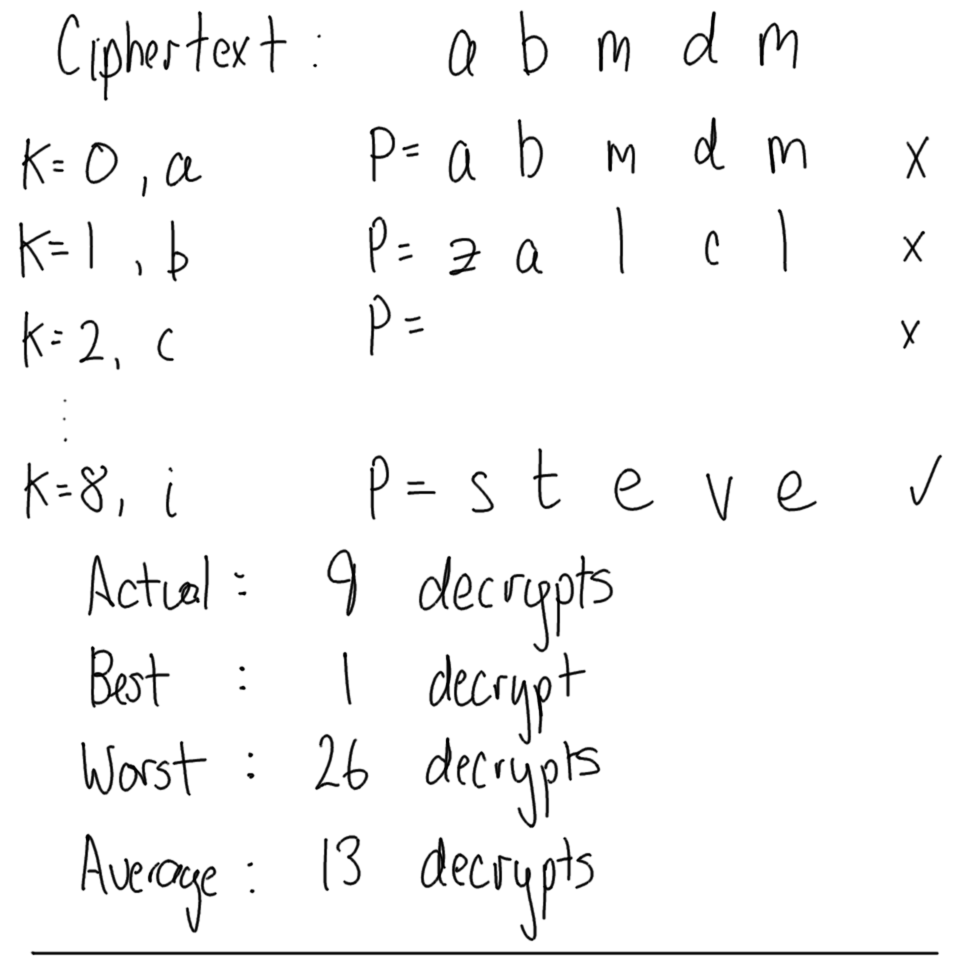 Ciphertext: a b m d m
K=0, a P= a b m d m x
K=1, b P= z a l c l x
K=2, c P= x
⋮
K=8, i P= s t e v e ✓
Actual: 9 decrypts
Best: 1 decrypt
Worst: 26 decrypts
Average: 13 decrypts